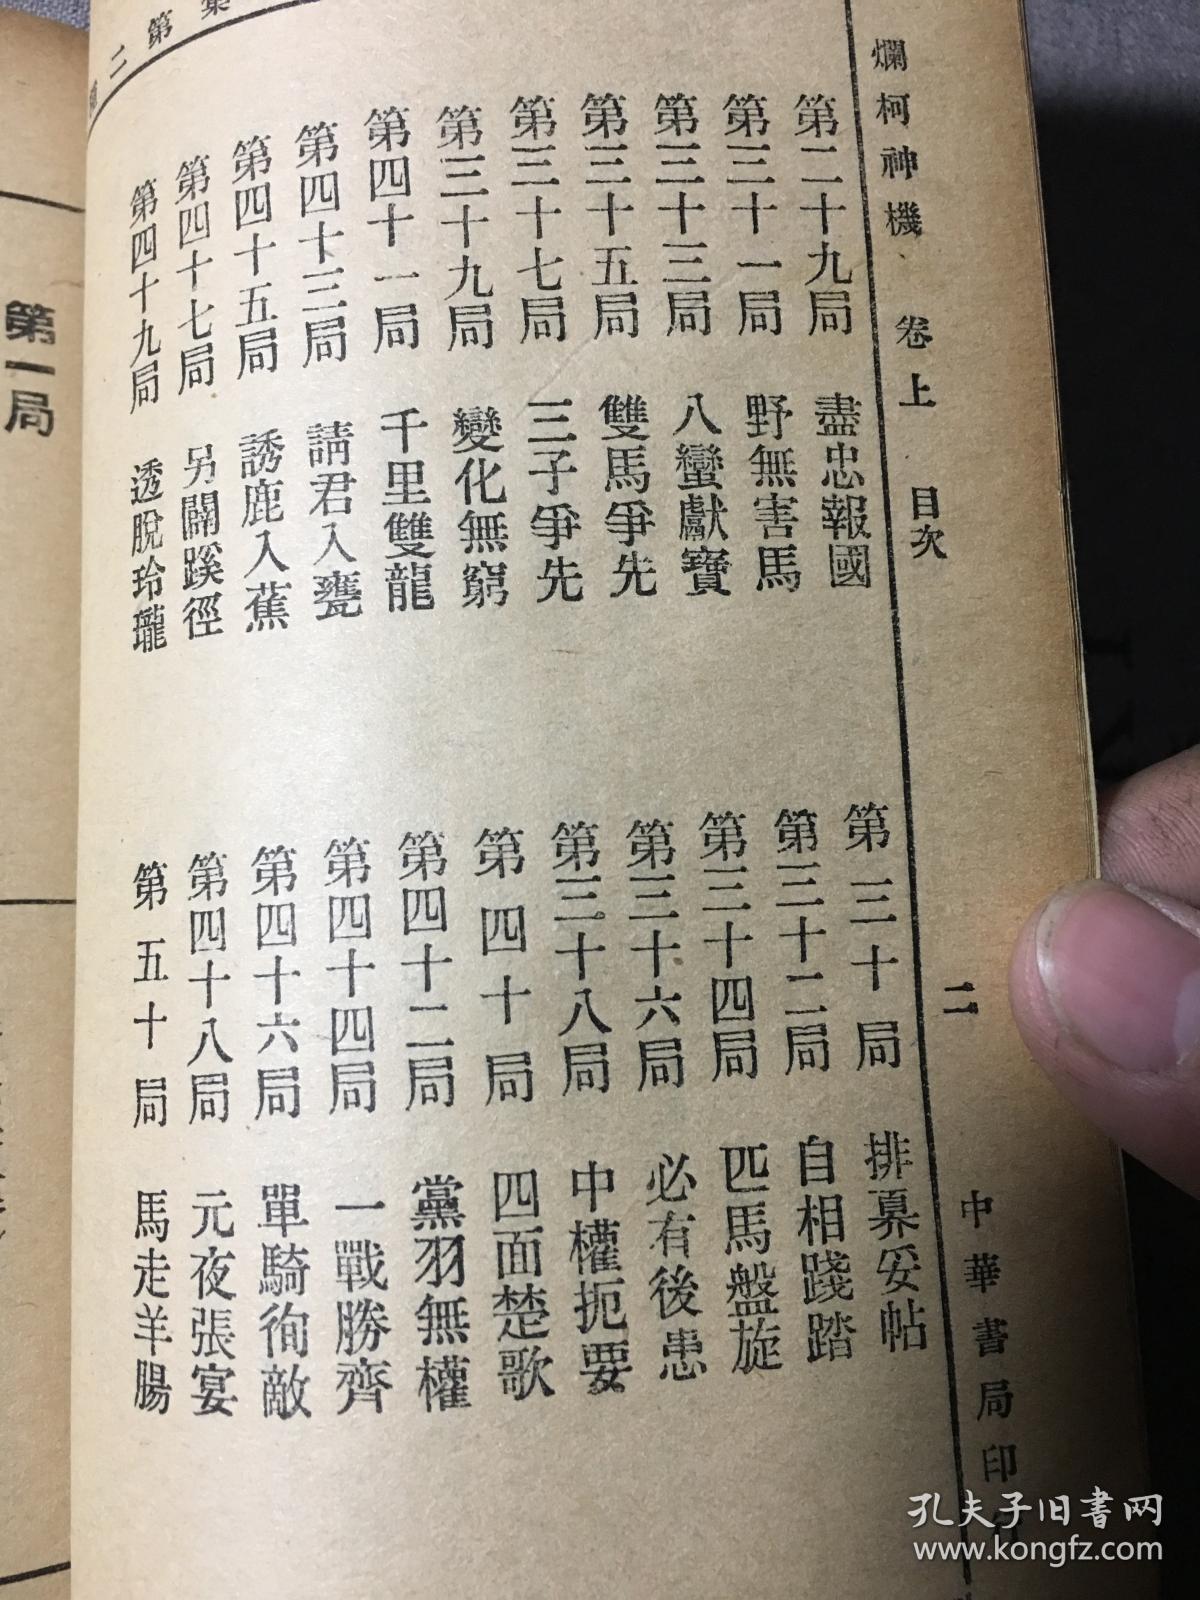 爛柯神機 卷上 目次 二 中華書局印
第二十九局 盡忠報國
第三十局 排奡妥帖
第三十一局 野無害馬
第三十二局 自相踐踏
第三十三局 八蠻獻寶
第三十四局 匹馬盤旋
第三十五局 雙馬爭先
第三十六局 必有後患
第三十七局 三子爭先
第三十八局 中權扼要
第三十九局 變化無窮
第四十局 四面楚歌
第四十一局 千里雙龍
第四十二局 黨羽無權
第四十三局 請君入甕
第四十四局 一戰勝齊
第四十五局 誘鹿入蕉
第四十六局 單騎徇敵
第四十七局 另闢蹊徑
第四十八局 元夜張宴
第四十九局 透脫玲瓏
第五十局 馬走羊腸
集第二
第一局
孔夫子旧书网
www.kongfz.com